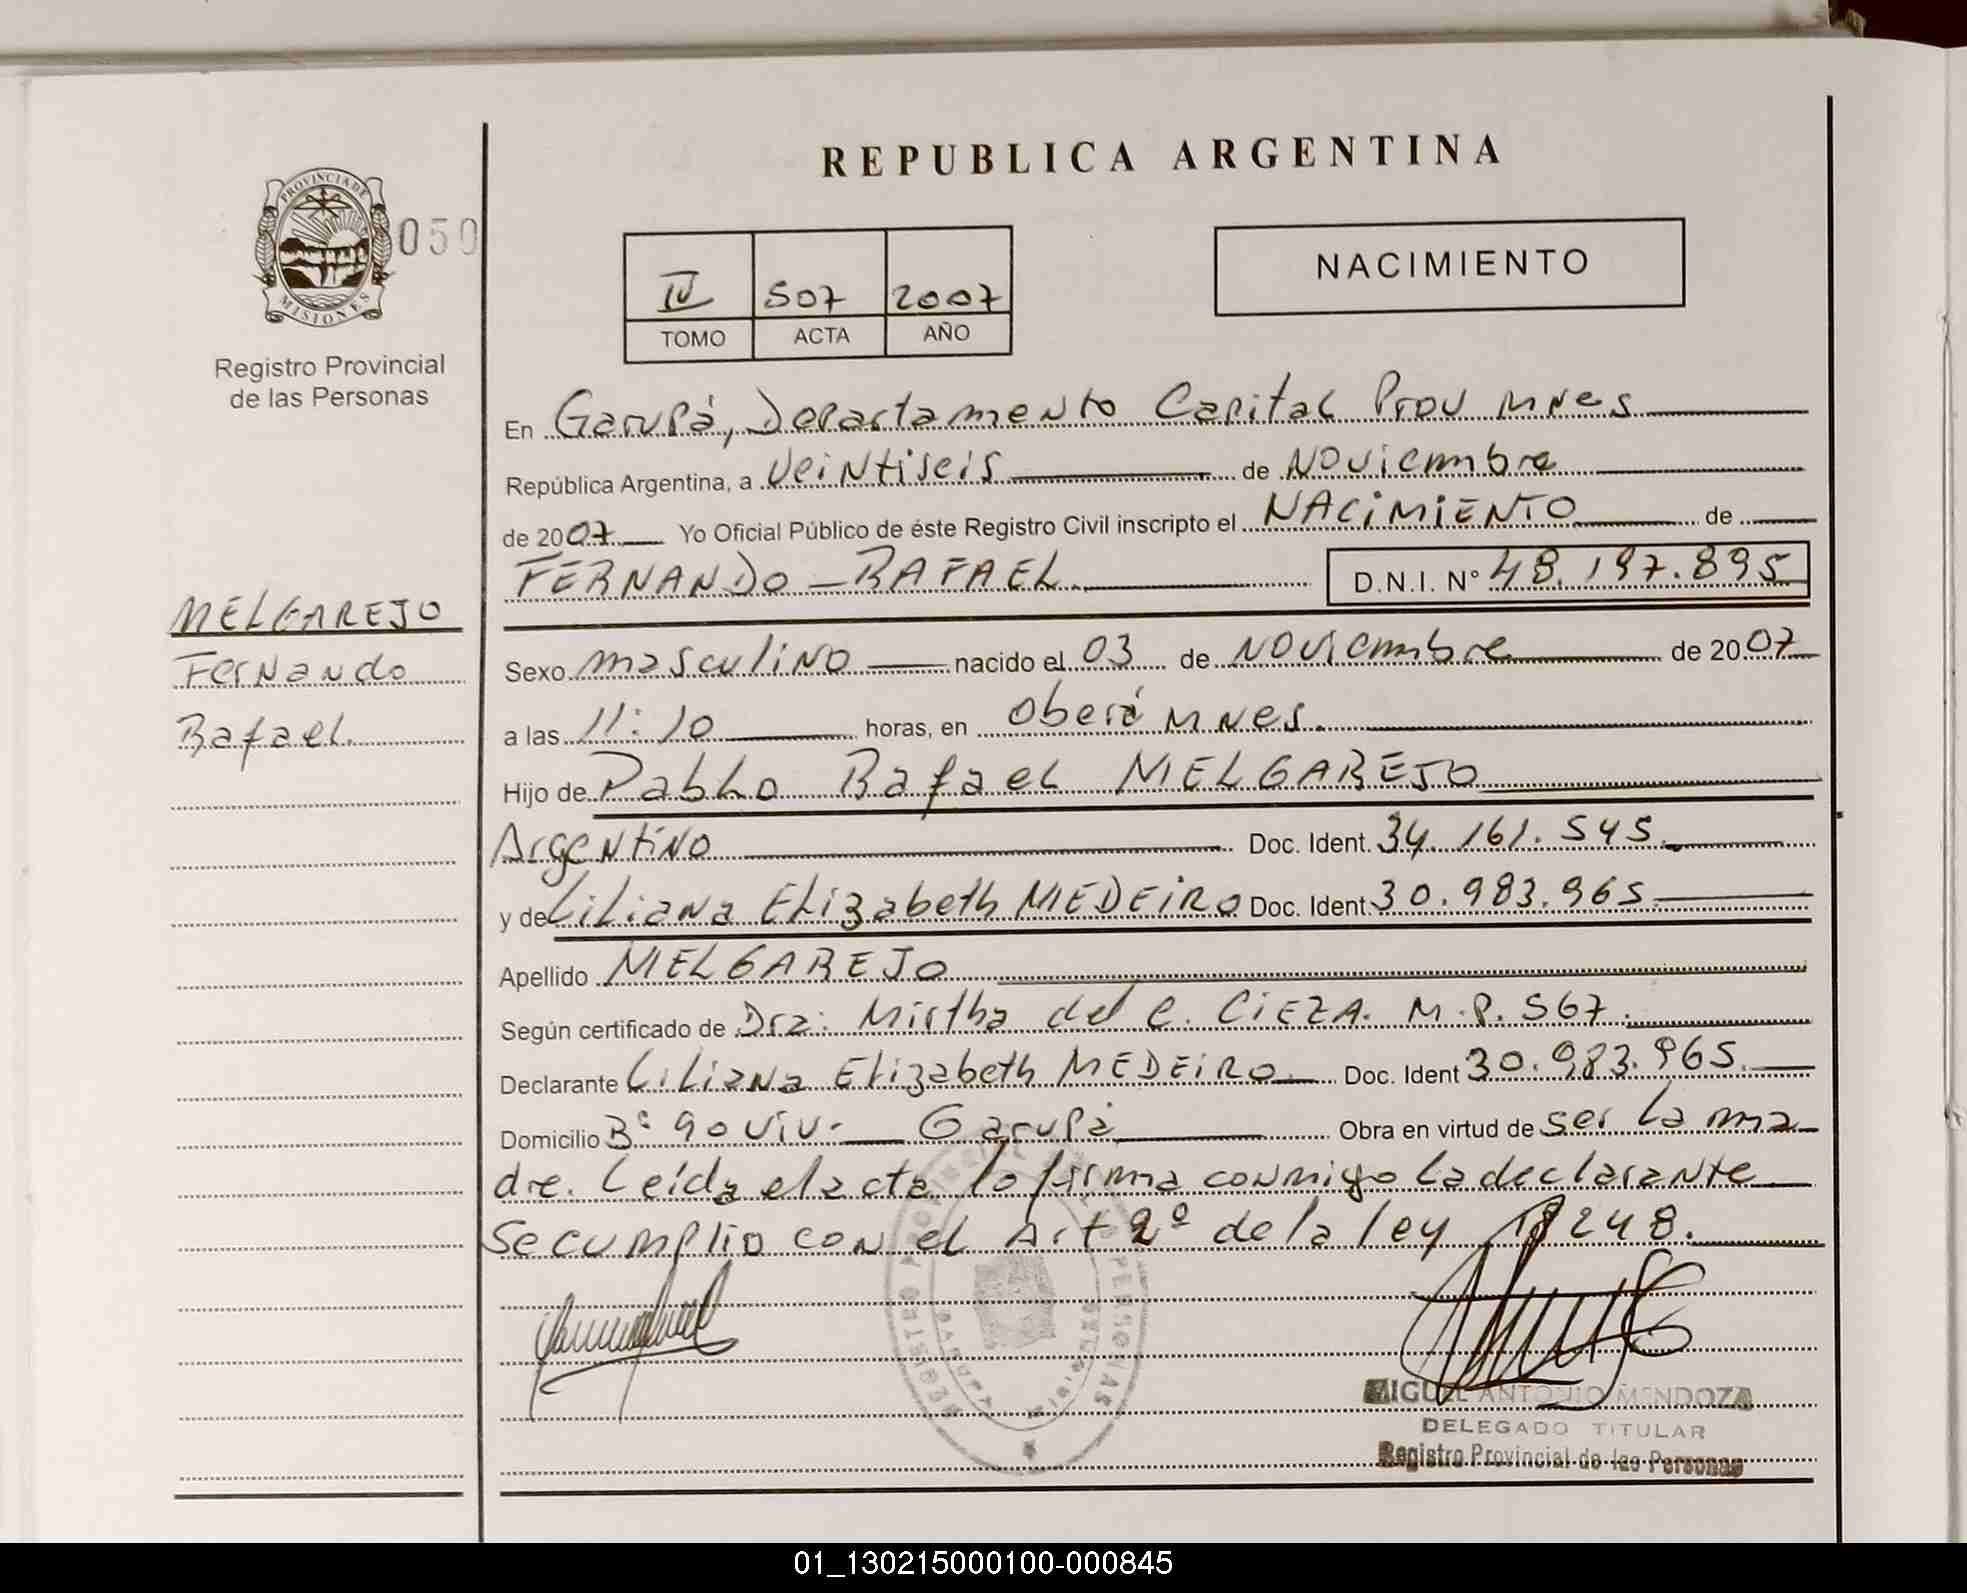 REPUBLICA ARGENTINA
PROVINCIA DE
MISIONES
050
Registro Provincial
de las Personas
IV 507 2007
TOMO ACTA AÑO
NACIMIENTO
En Garupá, Departamento Capital Prov Mnes
República Argentina, a Veintiseis de Noviembre
de 2007 Yo Oficial Público de éste Registro Civil inscripto el NACIMIENTO de
FERNANDO - RAFAEL D.N.I. N° 48.197.895
MELGAREJO
Fernando
Rafael
Sexo masculino nacido el 03 de Noviembre de 2007
a las 11:10 horas, en Oberá Mnes.
Hijo de Pablo Rafael MELGAREJO
Argentino Doc. Ident. 34.161.545
y de Liliana Elizabeth MEDEIRO Doc. Ident. 30.983.965
Apellido MELGAREJO
Según certificado de Dra: Mirtha del C. CIEZA. M.P. 567.
Declarante Liliana Elizabeth MEDEIRO Doc. Ident 30.983.965
Domicilio B° 90 viv. Garupá Obra en virtud de ser la ma
dre. Leída el acta lo firma conmigo la declarante
Se cumplio con el Art 2º de la ley 18248.
REGISTRO PROVINCIAL DE LAS PERSONAS
GARUPA
MISIONES
MIGUEL ANTONIO MENDOZA
DELEGADO TITULAR
Registro Provincial de las Personas
01_130215000100-000845